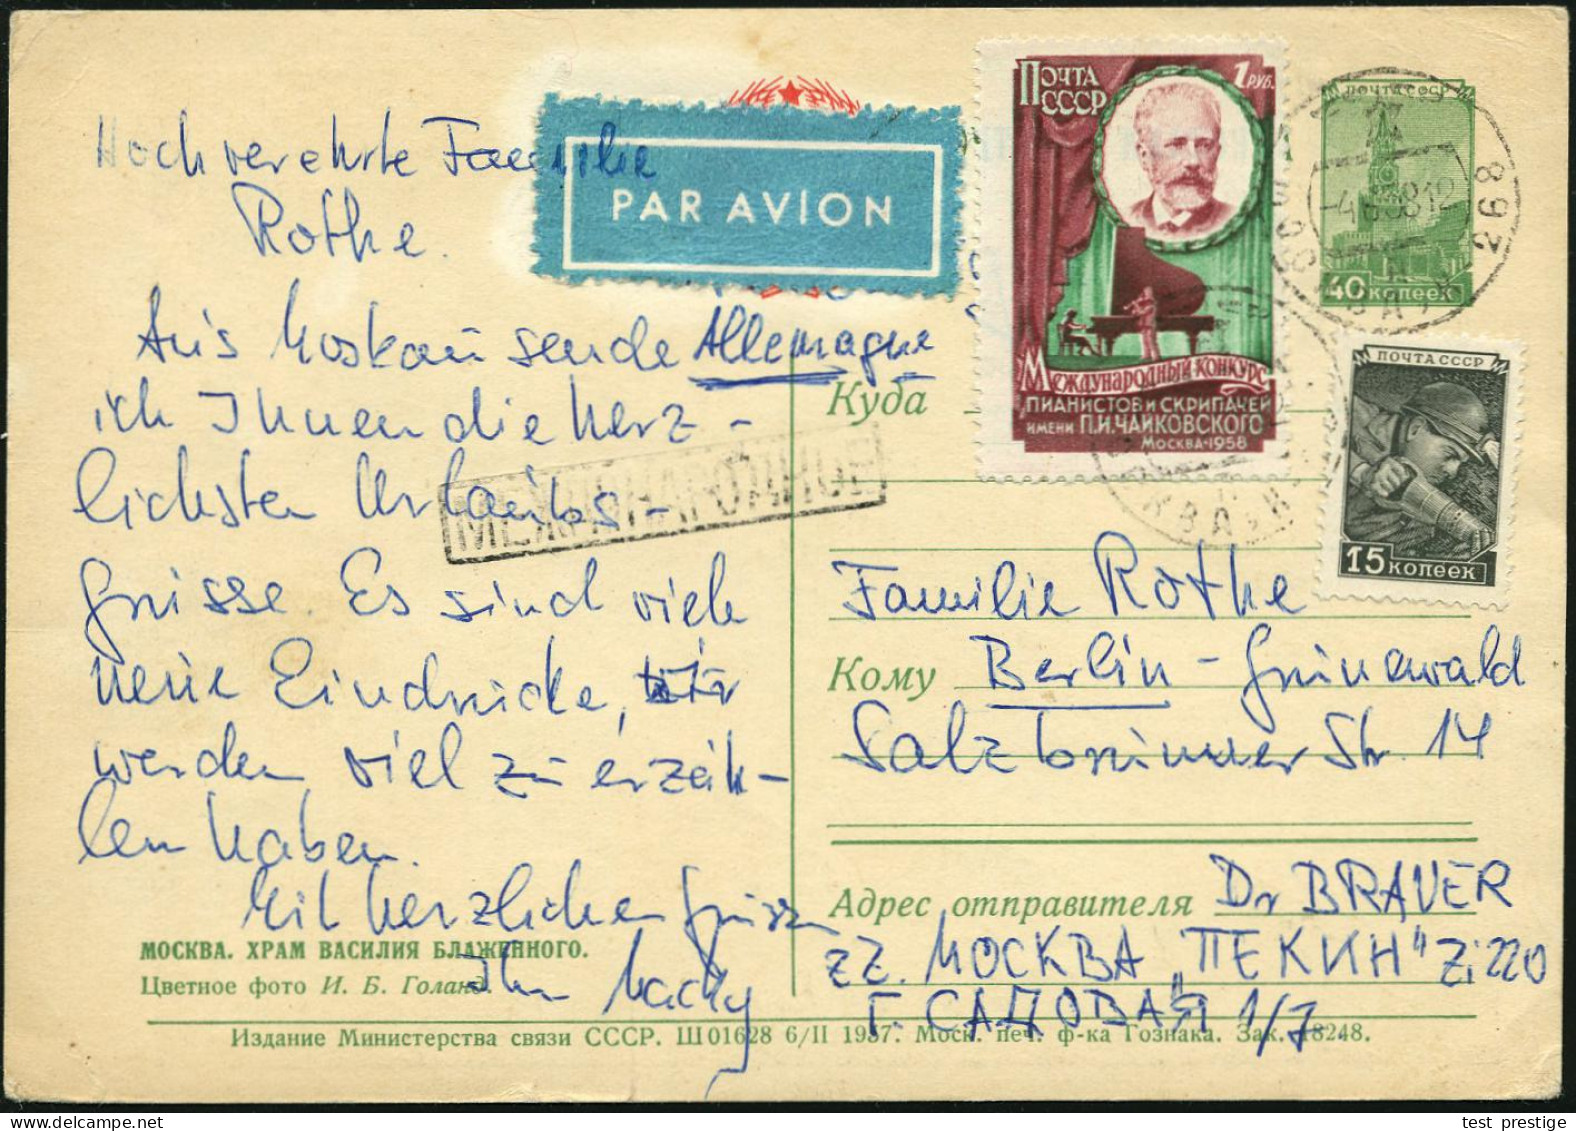 Hochverehrte Familie
Rothe.
Aus Moskau sende
ich Ihnen die herz-
lichsten Urlaubs-
grüsse. Es sind viele
neue Eindrücke, wir
werden viel zu erzäh-
len haben.
Mit herzlichen Grüssen
Ihr
МОСКВА. ХРАМ ВАСИЛИЯ БЛАЖЕННОГО.
Цветное фото И. Б. Голанд.
PAR AVION
Allemagne
МЕЖДУНАРОДНОЕ
ПОЧТА
СССР
1 РУБ.
МЕЖДУНАРОДНЫЙ КОНКУРС
ПИАНИСТОВ И СКРИПАЧЕЙ
ИМЕНИ П.И.ЧАЙКОВСКОГО
МОСКВА·1958
ПОЧТА СССР
40 копеек
268
ПОЧТА СССР
15 копеек
Куда
Familie Rothe
Кому Berlin - Grünewald
Salzbrunner Str. 14
Адрес отправителя Dr BRAUER
ZZ. МОСКВА "ПЕКИН" Zi 220
Г. САДОВАЯ 1/7.
Издание Министерства связи СССР. Ш01628 6/II 1957. Моск. печ. ф-ка Гознака. Зак. 18248.
test_prestige